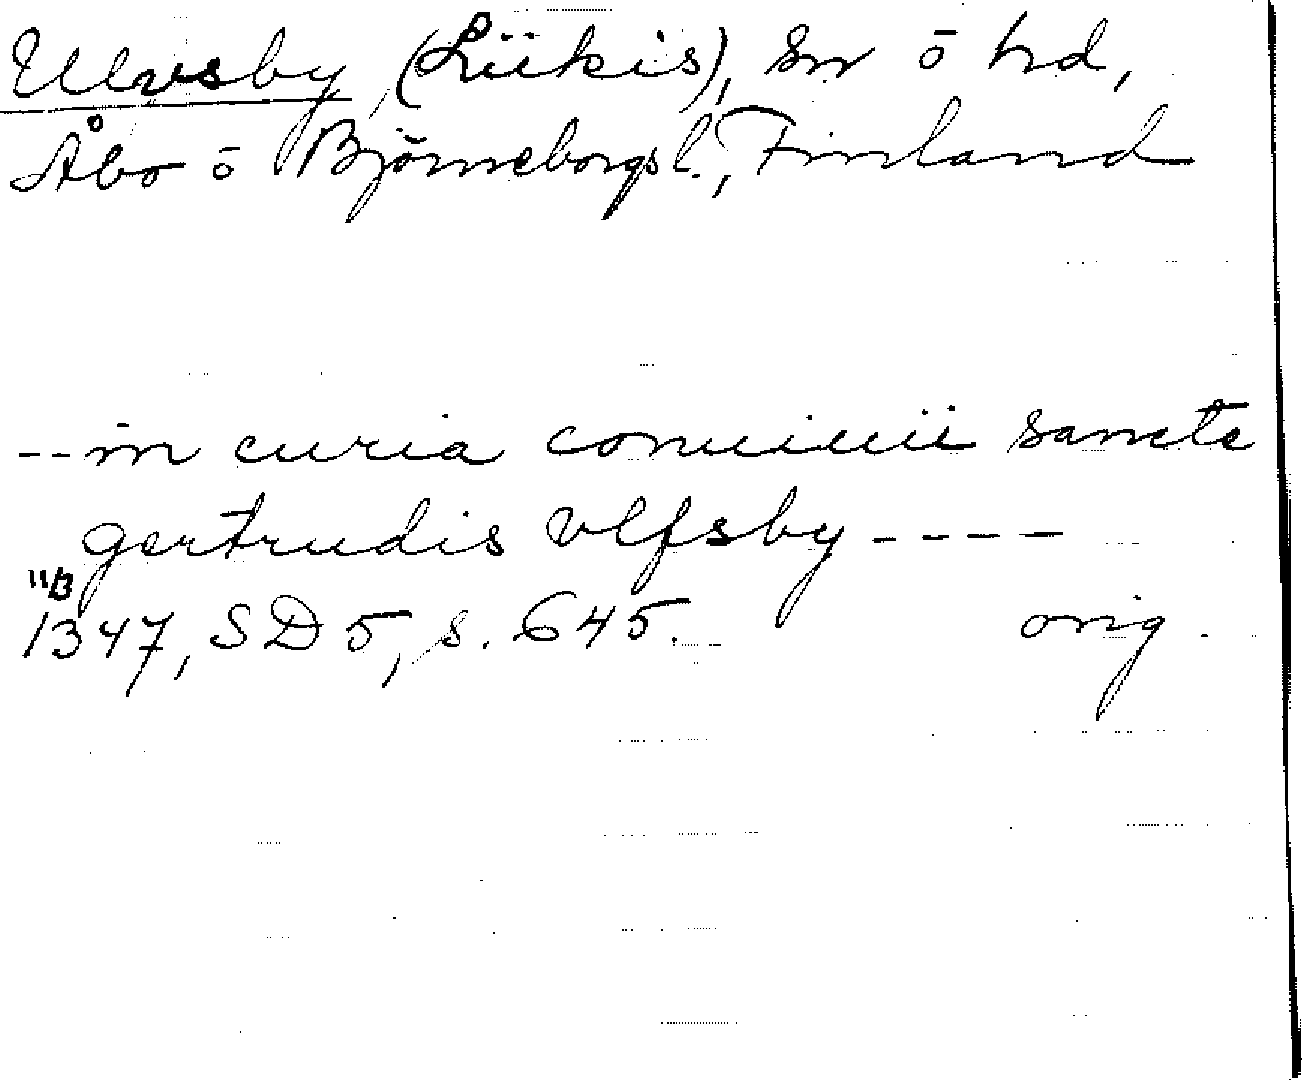 Ulvsby, (Liikis), sn ō hd,
Åbo ō Björneborgs l., Finland
-- in curia conuiuii sancte
gertrudis vlfsby ----
11/3
1347, SD 5, s. 645. orig.